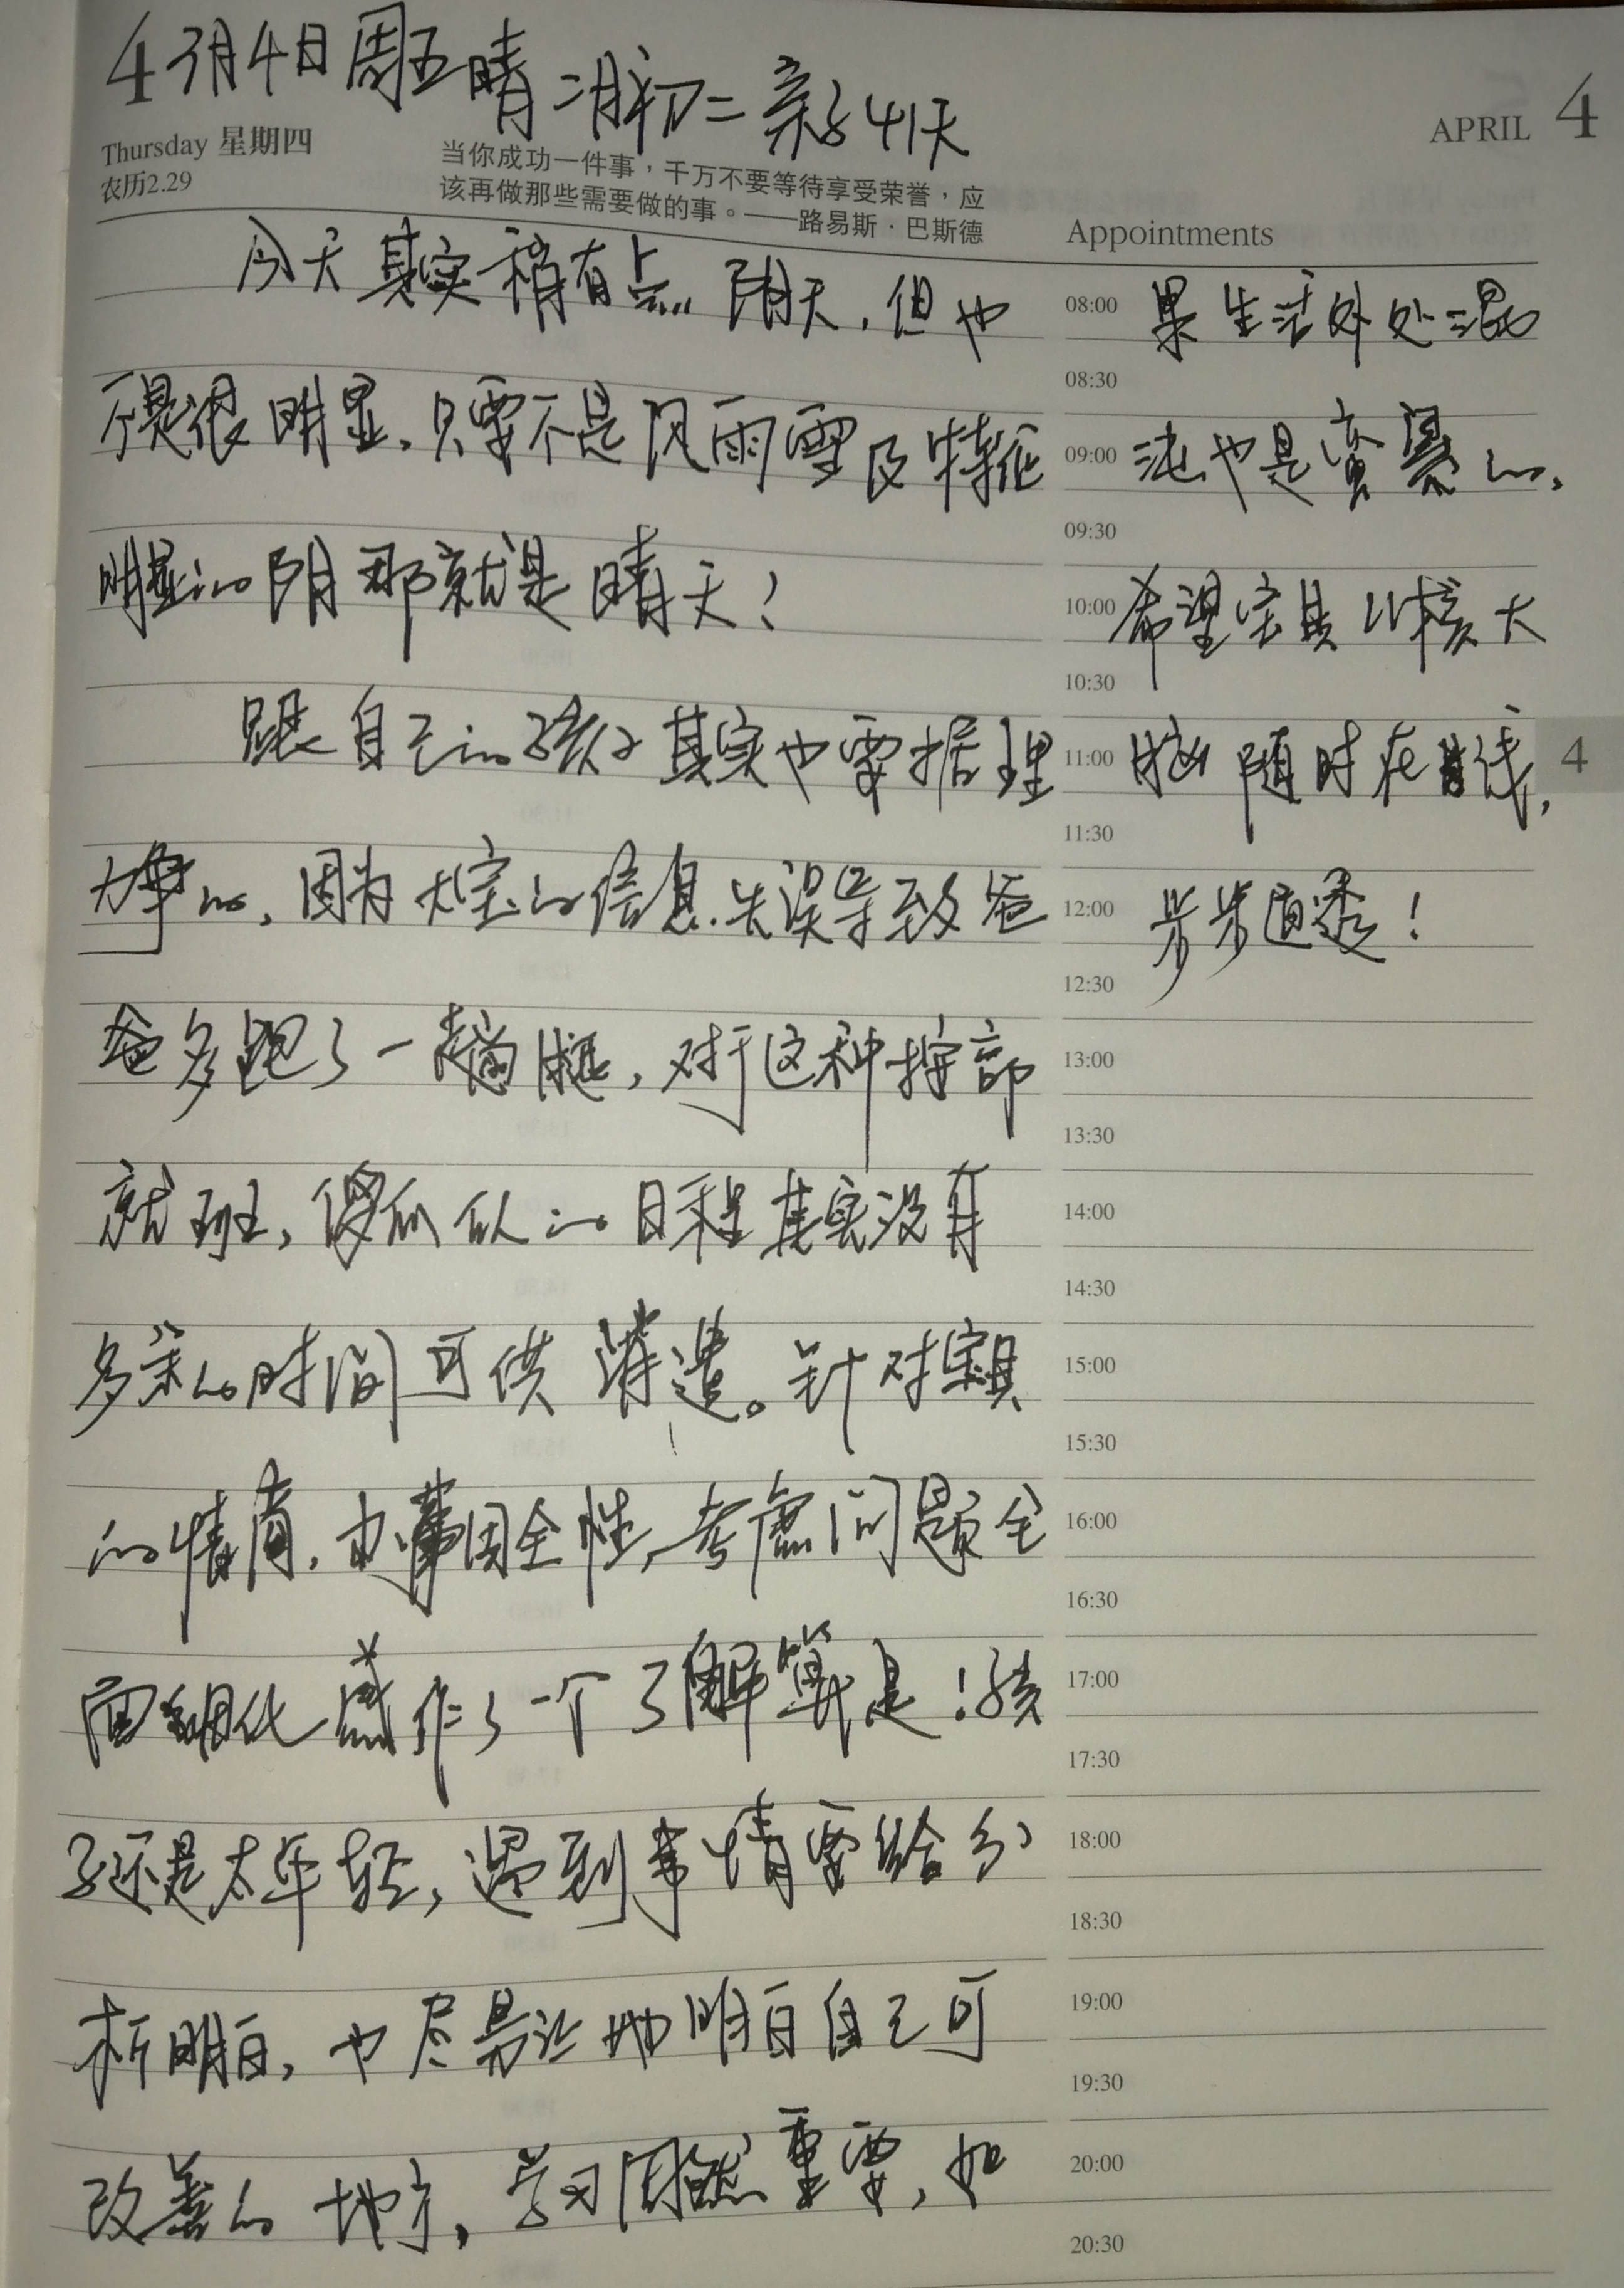 4月4日周五晴二月初二亲子41天
4
APRIL 4
Thursday 星期四
农历2.29
当你成功一件事，千万不要等待享受荣誉，应
该再做那些需要做的事。——路易斯·巴斯德
今天其实稍有点阴天，但也
不是很明显，只要不是风雨雪及特征
明显的阴那就是晴天！
跟自己的孩子其实也要据理
力争的，因为大宝的信息失误导致爸
爸多跑了一趟腿，对于这种按部
就班，傻瓜似的日程其实没有
多余的时间可供消遣。针对宝贝
的情商，办事周全性，考虑问题全
面细化感作了一个了解算是！孩
子还是太年轻，遇到事情要给分
析明白，也尽量让她明白自己可
改善的地方，学习固然重要，如
Appointments
08:00 果生活处处混
08:30
09:00 沌也是蛮累的，
09:30
10:00 希望宝贝以核大
10:30
11:00 脑随时在线， 4
11:30
12:00 步步通透！
12:30
13:00
13:30
14:00
14:30
15:00
15:30
16:00
16:30
17:00
17:30
18:00
18:30
19:00
19:30
20:00
20:30